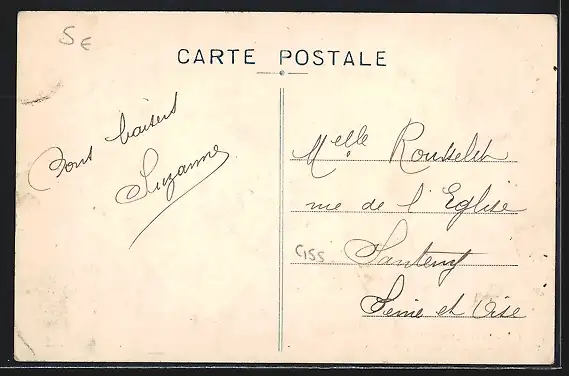 5 €
CARTE POSTALE
Bons baisers
Suzanne
Melle Rousselet
rue de l'Eglise
C155
Santeny
Seine et Oise